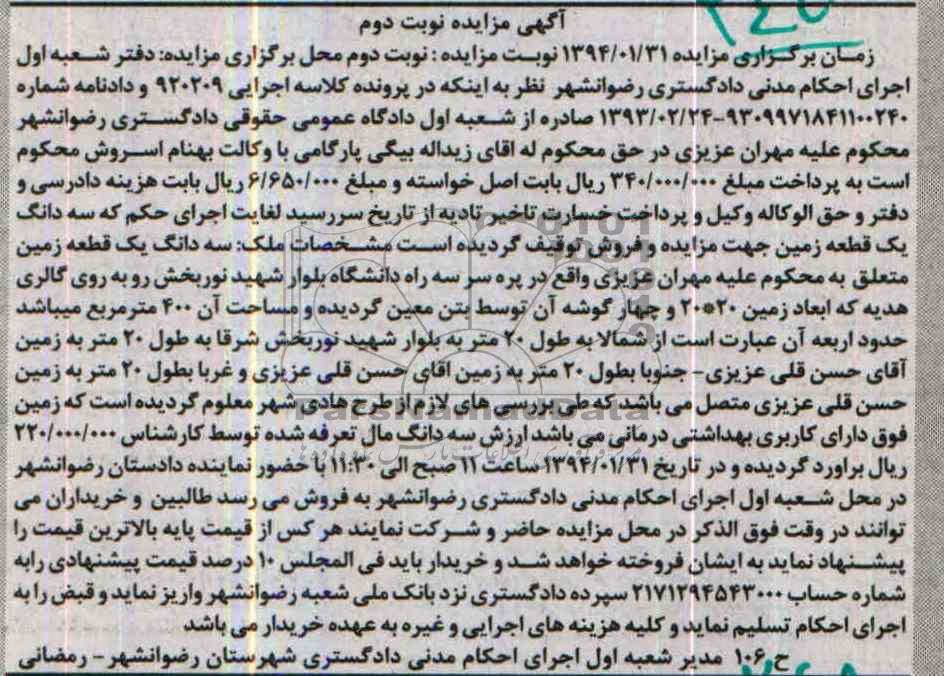 آگهی مزایده نوبت دوم
زمـان برگـزاری مزایده ۱۳۹۴/۰۱/۳۱ نوبـت مزایده : نوبت دوم محل برگزاری مزایده: دفتر شـعبه اول
اجرای احکام مدنی دادگستری رضوانشهر نظر به اینکه در پرونده کلاسه اجرایی ۹۲۰۲۰۹ و دادنامه شماره
۹۳۰۹۹۷۱۸۴۱۱۰۰۲۴۰-۱۳۹۳/۰۲/۲۴ صادره از شـعبه اول دادگاه عمومی حقوقی دادگسـتری رضوانشهر
محکوم علیه مهران عزیزی در حق محکوم له اقای زیداله بیگی پارگامی با وکالت بهنام اسـروش محکوم
است به پرداخت مبلغ ۳۴۰/۰۰۰/۰۰۰ ریال بابت اصل خواسته و مبلغ ۶/۶۵۰/۰۰۰ ریال بابت هزینه دادرسی و
دفتر و حق الوکاله وکیل و پرداخت خسارت تاخیر تادیه از تاریخ سررسید لغایت اجرای حکم که سه دانگ
یک قطعه زمین جهت مزایده و فروش توقیف گردیده اسـت مشـخصات ملک: سه دانگ یک قطعه زمین
متعلق به محکوم علیه مهران عزیزی واقع در پره سر سه راه دانشگاه بلوار شهید نوربخش رو به روی گالری
هدیه که ابعاد زمین ۲۰*۲۰ و چهار گوشه آن توسط بتن معین گردیده و مساحت آن ۴۰۰ مترمربع میباشد
حدود اربعه آن عبارت است از شمالا به طول ۲۰ متر به بلوار شهید نوربخش شرقا به طول ۲۰ متر به زمین
آقای حسن قلی عزیزی- جنوبا بطول ۲۰ متر به زمین اقای حسن قلی عزیزی و غربا بطول ۲۰ متر به زمین
حسن قلی عزیزی متصل می باشد که طی بررسی های لازم از طرح هادی شهر معلوم گردیده است که زمین
فوق دارای کاربری بهداشتی درمانی می باشد ارزش سه دانگ مال تعرفه شده توسط کارشناس ۲۲۰/۰۰۰/۰۰۰
ریال براورد گردیده و در تاریخ ۱۳۹۴/۰۱/۳۱ ساعت ۱۱ صبح الی ۱۱:۳۰ با حضور نماینده دادستان رضوانشهر
در محل شـعبه اول اجرای احکام مدنی دادگستری رضوانشهر به فروش می رسد طالبین و خریداران می
توانند در وقت فوق الذکر در محل مزایده حاضر و شـرکت نمایند هر کس از قیمت پایه بالاترین قیمت را
پیشـنهاد نماید به ایشان فروخته خواهد شـد و خریدار باید فی المجلس ۱۰ درصد قیمت پیشنهادی رابه
شماره حساب ۲۱۷۱۲۹۴۵۴۳۰۰۰ سپرده دادگستری نزد بانک ملی شعبه رضوانشهر واریز نماید و قبض را به
اجرای احکام تسلیم نماید و کلیه هزینه های اجرایی و غیره به عهده خریدار می باشد
ح ۱۰۶ مدیر شعبه اول اجرای احکام مدنی دادگستری شهرستان رضوانشهر - رمضانی